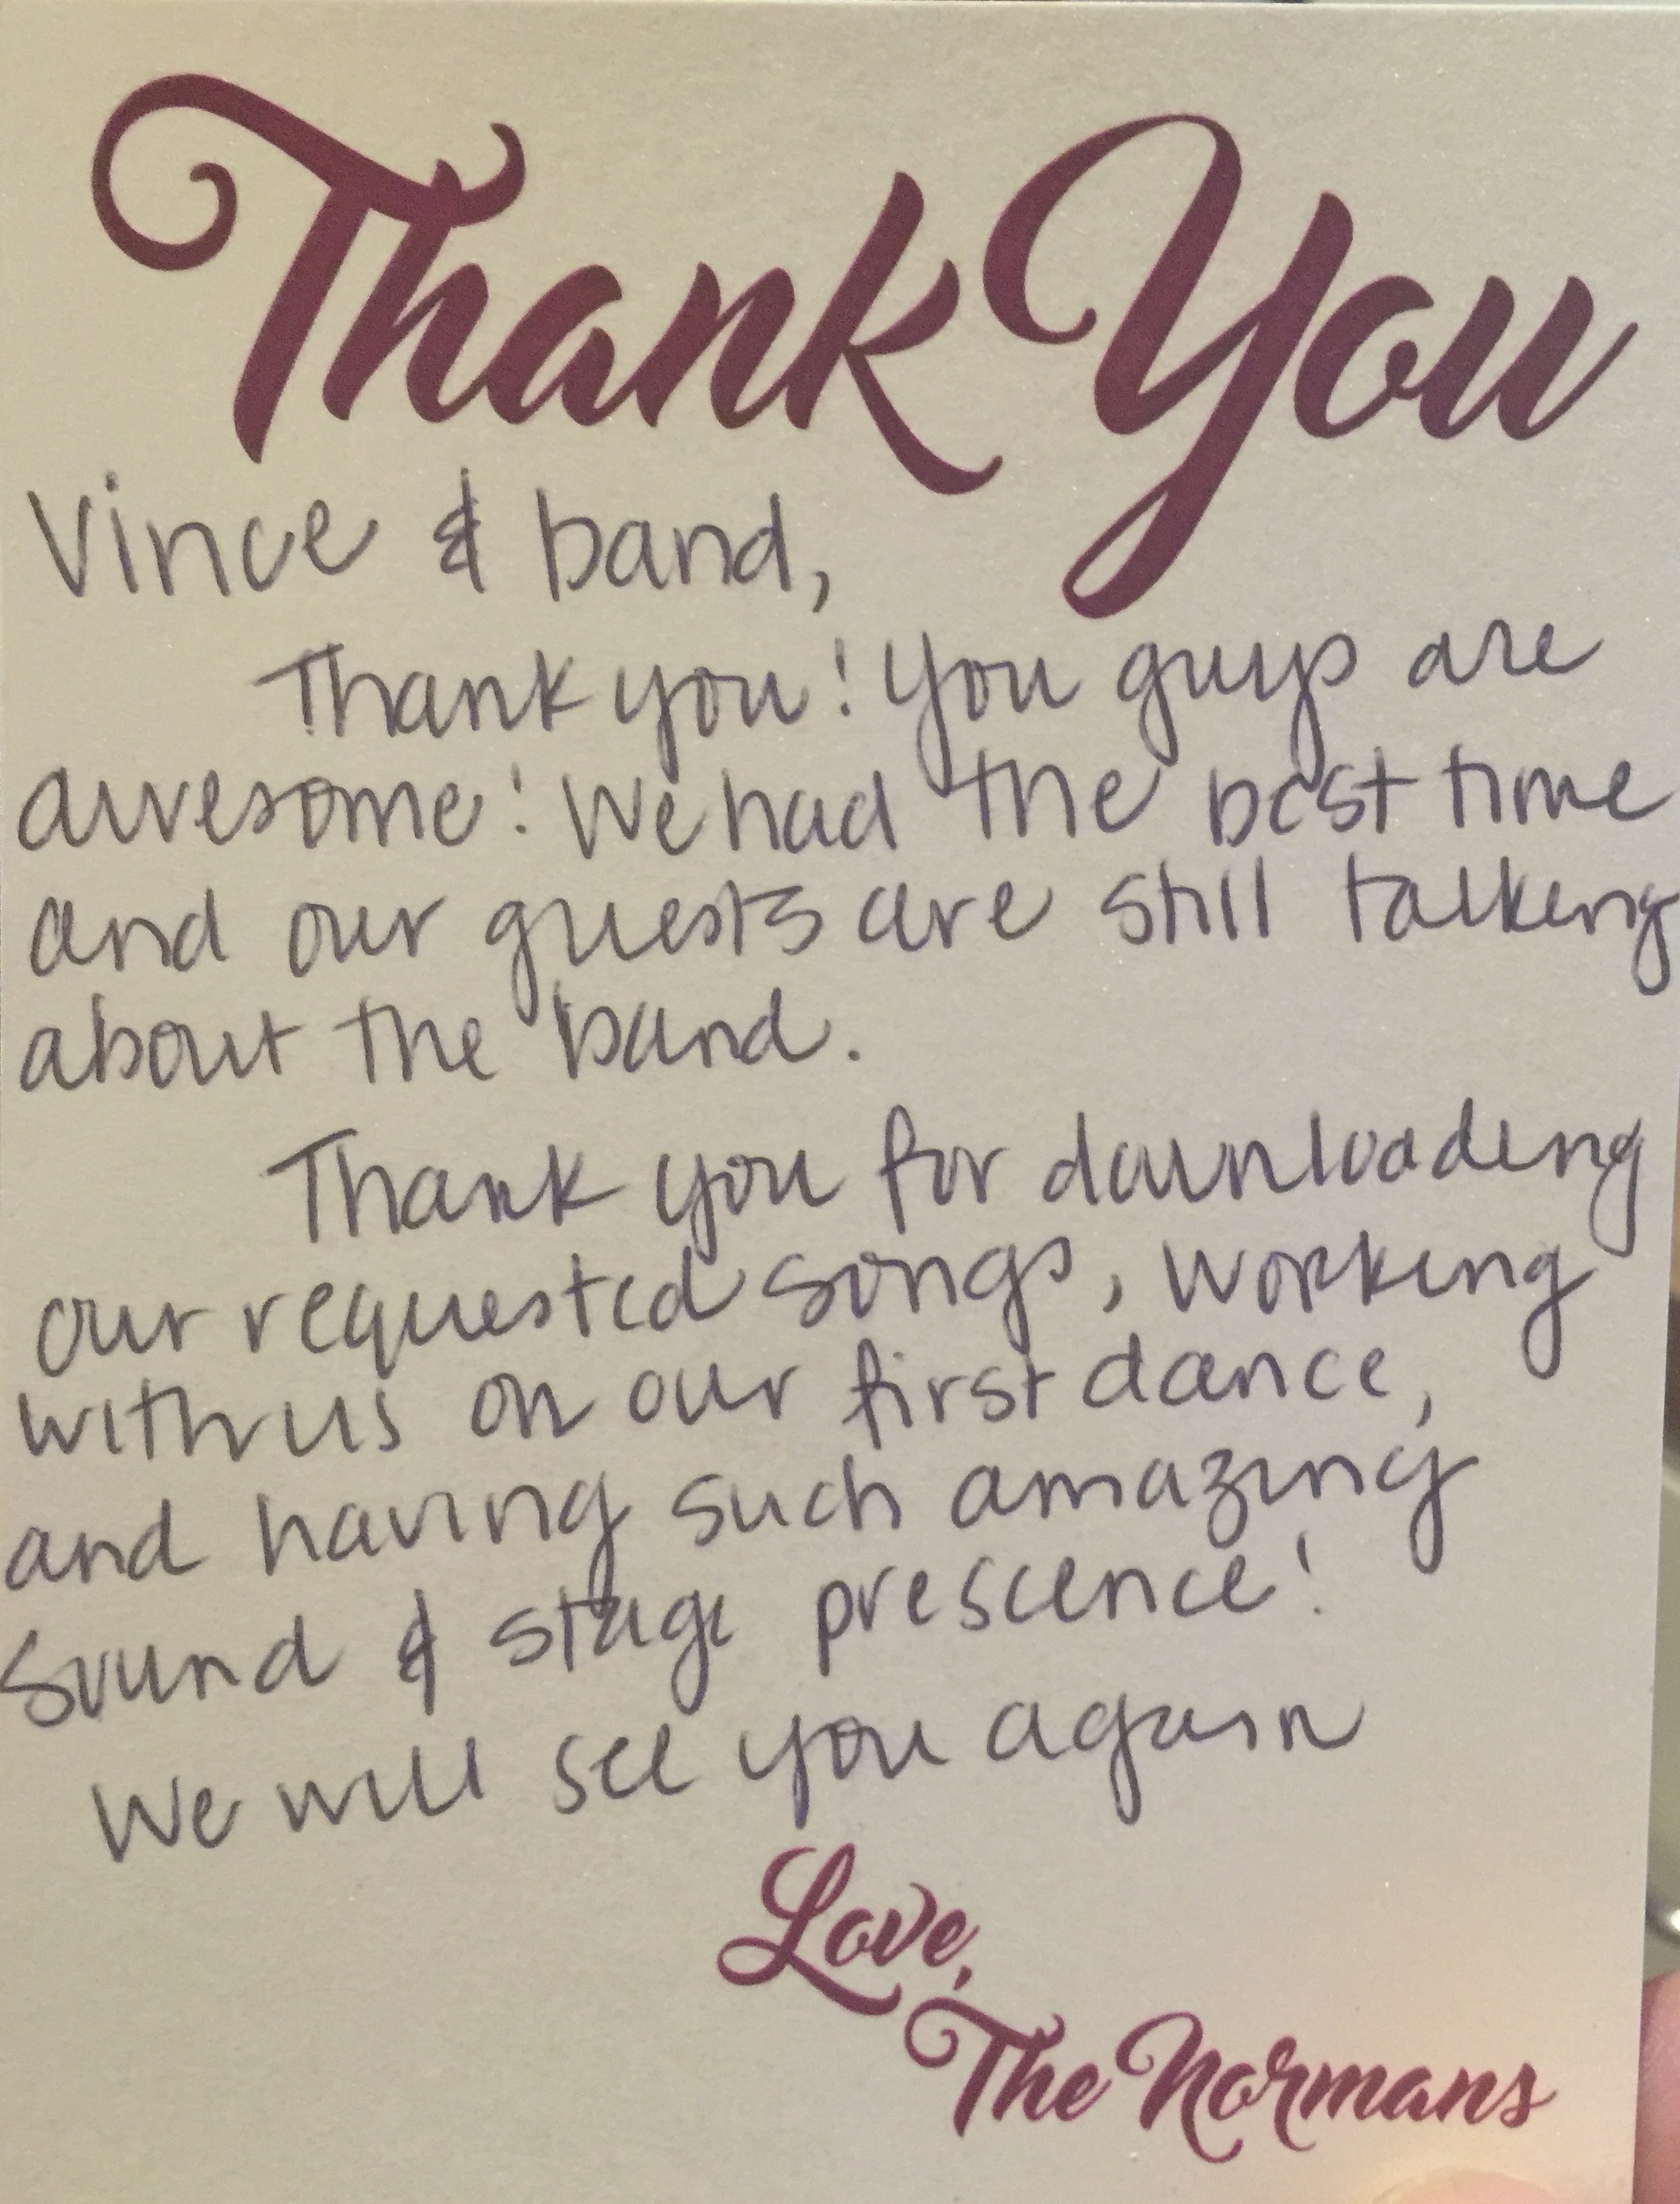 Thank You
Vince & band,
Thank you! You guys are
awesome! We had the best time
and our guests are still talking
about the band.
Thank you for downloading
our requested songs, working
with us on our first dance,
and having such amazing
sound & stage prescence!
We will see you again
Love,
The Normans